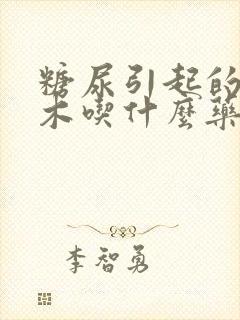 糖尿引起的
木喫什麼藥
李智勇